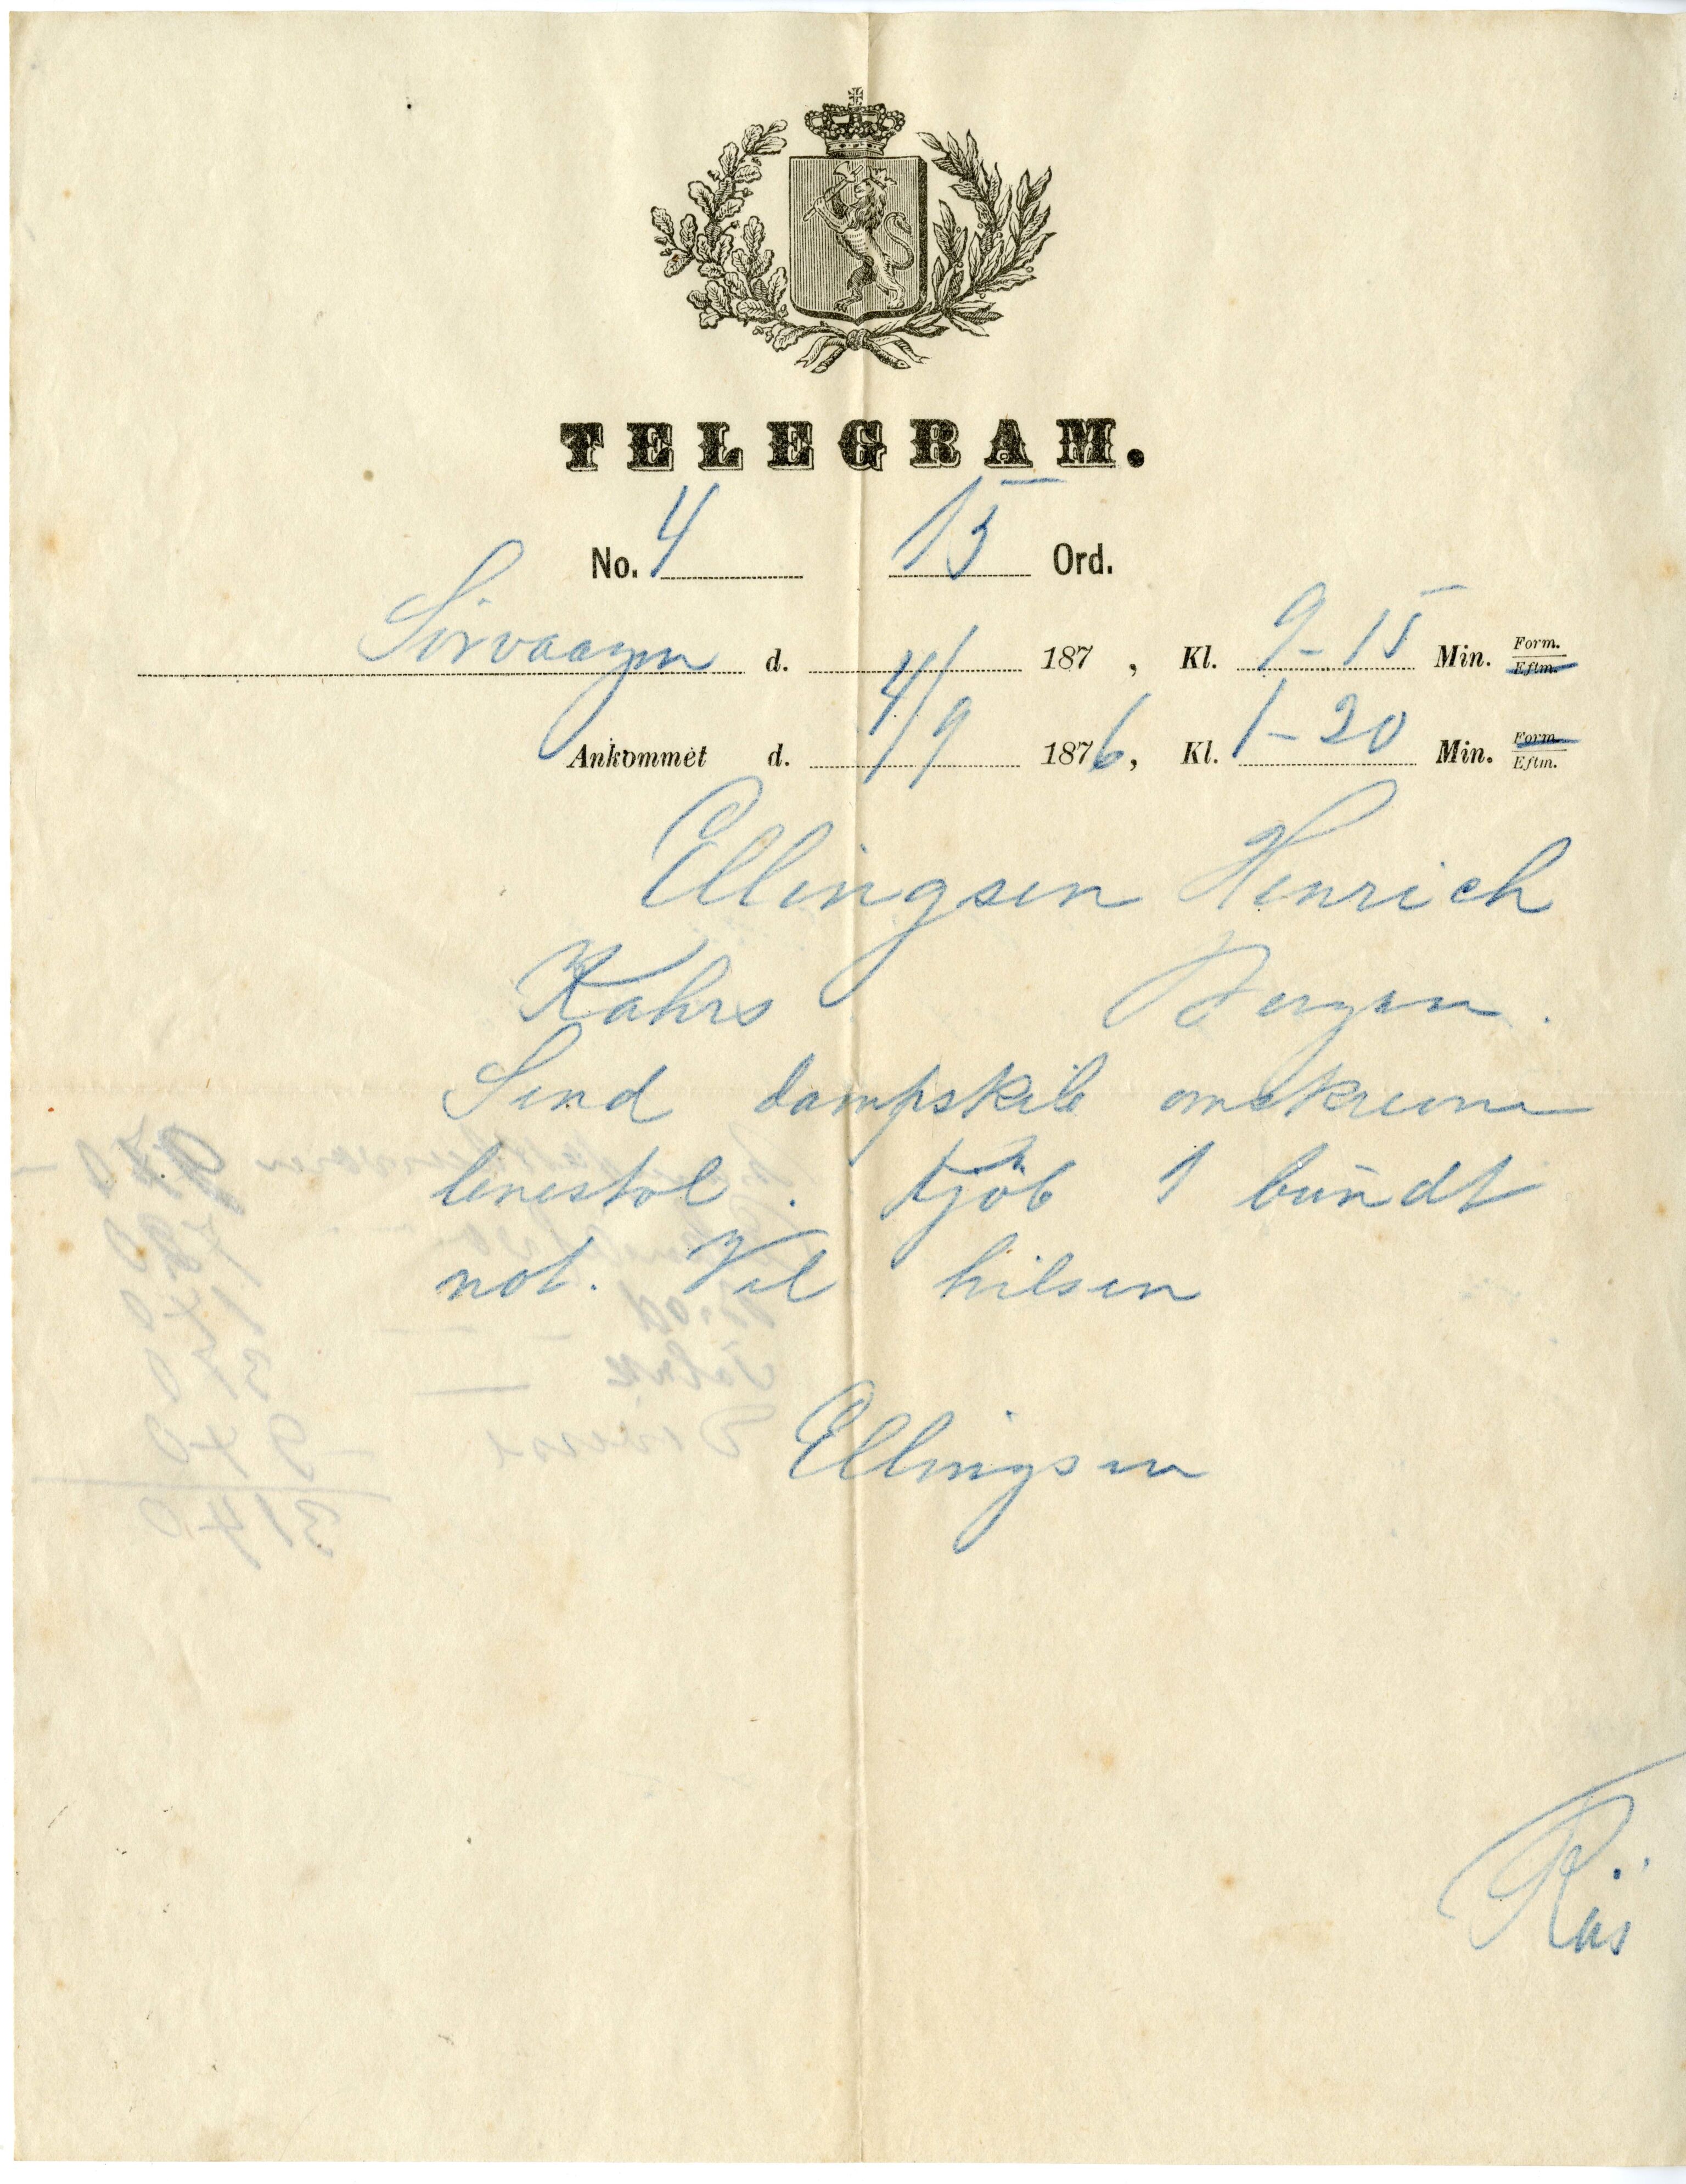 TELEGRAM.
No. 4 15 Ord.
Sörvaagen d. 4/9 187 , Kl. 9-15 Min. Form. Eftm.
Ankommet d. 4/9 1876, Kl. 1-20 Min. Form. Eftm.
Ellingsen Henrich
Kahrs Bergen.
Send dampskib omskrevne
lenestol. Kjöb 1 bundt
not. Vel hilsen
Ellingsen
970
790
140
310
9 40
3140